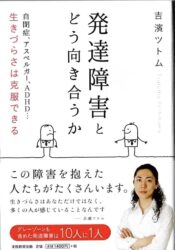 吉濱ツトム
発達障害と
どう向き合うか
自閉症、アスペルガー、ADHD
生きづらさは克服できる
この障害を抱えた
人たちがたくさんいます。
生きづらさはあなただけではなく、
多くの人が感じていることなんです
グレーゾーンも
含めた発達障害は10人に1人
実務教育出版
定価:本体1400円+税